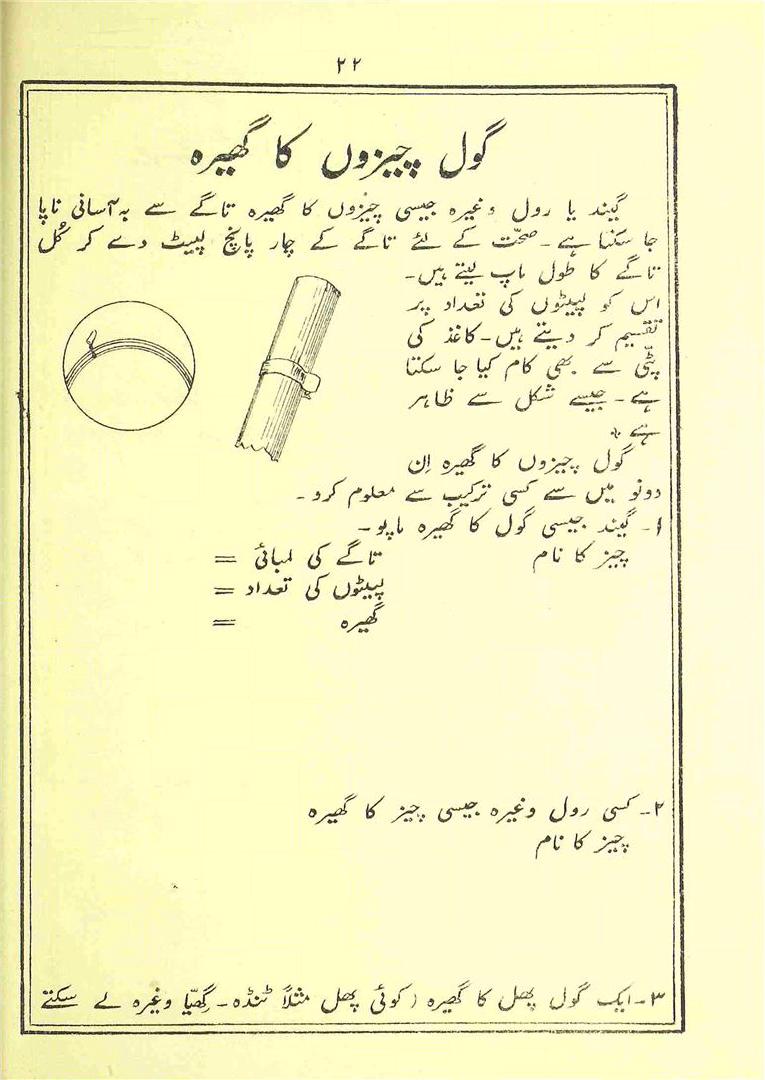 ۲۲
گول چیزوں کا گھیرہ
گیند یا رول وغیرہ جیسی چیزوں کا گھیرہ تاگے سے بہ آسانی ناپا
جا سکتا ہے۔ صحّت کے لئے تاگے کے چار پانچ لپیٹ دے کر کُل
تاگے کا طول ماپ لیتے ہیں۔
اس کو لپیٹوں کی تعداد پر
تقسیم کر دیتے ہیں۔ کاغذ کی
پٹّی سے بھی کام کیا جا سکتا
ہے۔ جیسے شکل سے ظاہر
ہے *
گول چیزوں کا گھیرہ اِن
دونو میں سے کسی ترکیب سے معلوم کرو۔
۱۔ گیند جیسی گول کا گھیرہ ماپو۔
چیز کا نام تاگے کی لمبائی =
لپیٹوں کی تعداد =
گھیرہ =
۲۔ کسی رول وغیرہ جیسی چیز کا گھیرہ
چیز کا نام
۳۔ ایک گول پھل کا گھیرہ (کوئی پھل مثلاً ٹنڈہ۔ گھِیّا وغیرہ لے سکتے